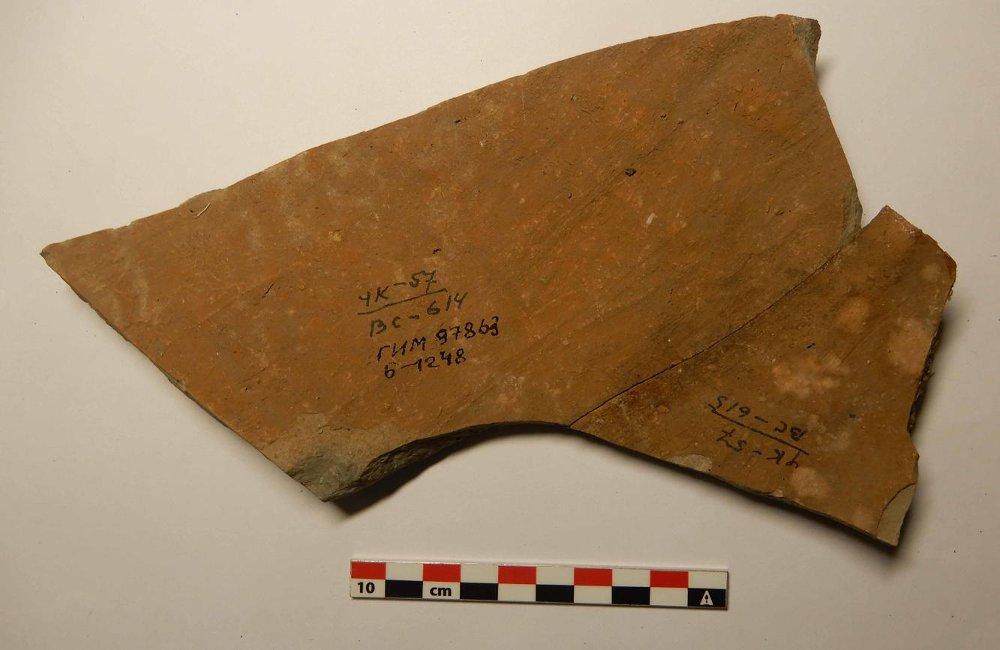 ЧК-57
ВС-614
ГИМ 97863
Б-1248
ЧК-57
ВС-615
10 cm